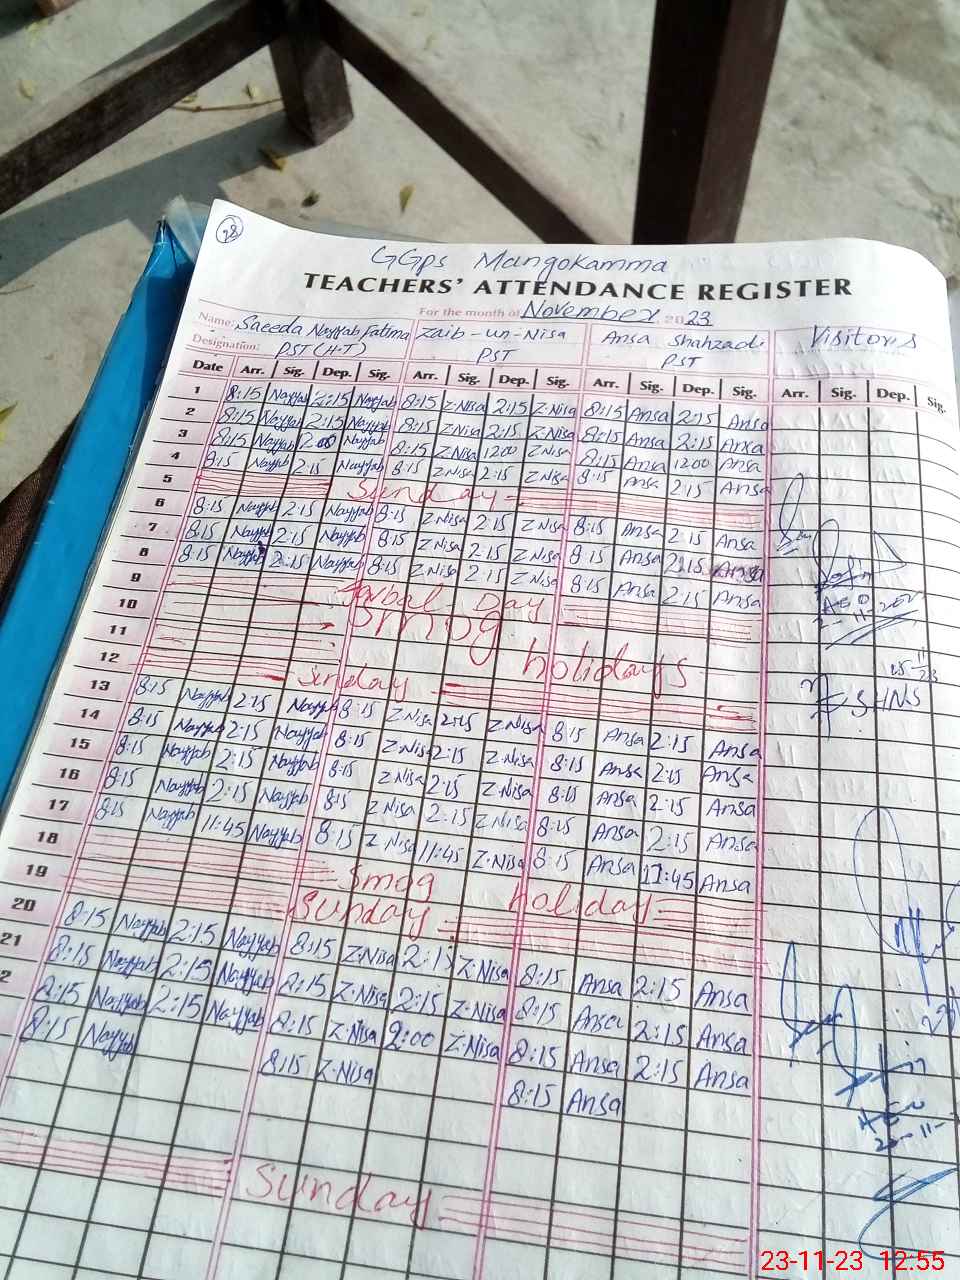 98
GGps Mangokamma
TEACHERS' ATTENDANCE REGISTER
For the month of November 2023
Name: Saeeda Nayyab Fatima Zaib-un-Nisa Ansa Shahzadi Visitors
Designation: PST (H.T) PST PST
Date Arr. Sig. Dep. Sig. Arr. Sig. Dep. Sig. Arr. Sig. Dep. Sig. Arr. Sig. Dep. Sig.
1 8:15 Nayyab 2:15 Nayyab 8:15 Z.Nisa 2:15 Z.Nisa 8:15 Ansa 2:15 Ansa
2 8:15 Nayyab 2:15 Nayyab 8:15 Z.Nisa 2:15 Z.Nisa 8:15 Ansa 2:15 Ansa
3 8:15 Nayyab Nayyab 8:15 Z.Nisa 12:00 Z.Nisa 8:15 Ansa 12:00 Ansa
4 8:15 Nayyab 2:15 Nayyab 8:15 Z.Nisa 2:15 Z.Nisa 8:15 Ansa 2:15 Ansa
5 Sunday
6 8:15 Nayyab 2:15 Nayyab 8:15 Z.Nisa 2:15 Z.Nisa 8:15 Ansa 2:15 Ansa
7 8:15 Nayyab 2:15 Nayyab 8:15 Z.Nisa 2:15 Z.Nisa 8:15 Ansa 2:15 Ansa
8 8:15 Nayyab 2:15 Nayyab 8:15 Z.Nisa 2:15 Z.Nisa 8:15 Ansa 2:15 Ansa
9 Day
10 Smog
11 holidays
12 Sunday
13 8:15 Nayyab 2:15 Nayyab 8:15 Z.Nisa 2:15 Z.Nisa 8:15 Ansa 2:15 Ansa
14 8:15 Nayyab 2:15 Nayyab 8:15 Z.Nisa 2:15 Z.Nisa 8:15 Ansa 2:15 Ansa
15 8:15 Nayyab 2:15 Nayyab 8:15 Z.Nisa 2:15 Z.Nisa 8:15 Ansa 2:15 Ansa
16 8:15 Nayyab 2:15 Nayyab 8:15 Z.Nisa 2:15 Z.Nisa 8:15 Ansa 2:15 Ansa
17 8:15 Nayyab 11:45 Nayyab 8:15 Z.Nisa 11:45 Z.Nisa 8:15 Ansa 11:45 Ansa
18 Smog holiday
19 Sunday
20 8:15 Nayyab 2:15 Nayyab 8:15 Z.Nisa 2:15 Z.Nisa 8:15 Ansa 2:15 Ansa
21 8:15 Nayyab 2:15 Nayyab 8:15 Z.Nisa 2:15 Z.Nisa 8:15 Ansa 2:15 Ansa
2 8:15 Nayyab 2:15 Nayyab 8:15 Z.Nisa 2:00 Z.Nisa 8:15 Ansa 2:15 Ansa
8:15 Nayyab 8:15 Z.Nisa 8:15 Ansa
Sunday
AEO
AEO
23-11-23 12:55